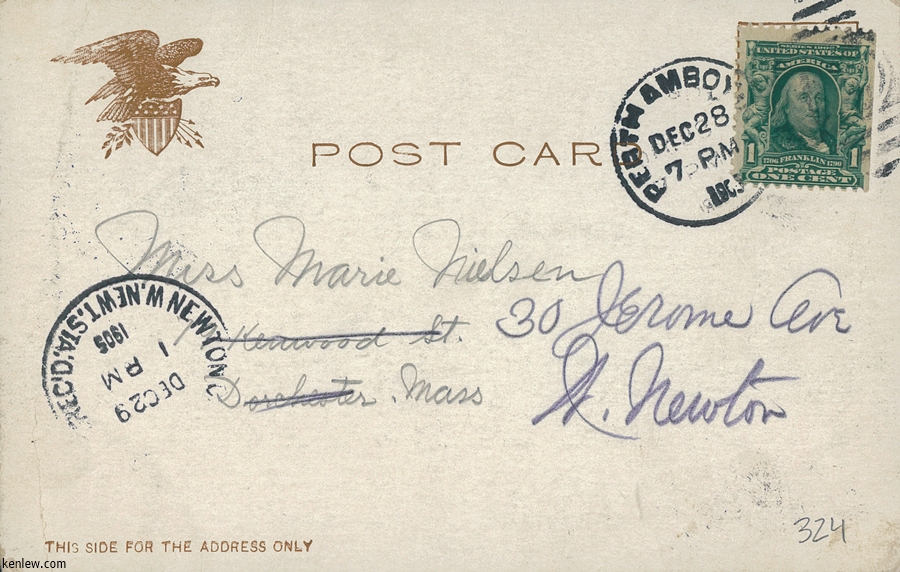 SERIES 1902
UNITED STATES OF
AMERICA
1 1706 FRANKLIN 1790 1
POSTAGE
ONE CENT
PERTH AMBOY
DEC 28
7 PM
POST CARD
Miss Marie Nielsen
Kenwood St.
30 Jerome Ave
Dorchester. Mass
W. Newton
REC'D. STA. W. NEWTON
DEC 29
1 PM
1905
THIS SIDE FOR THE ADDRESS ONLY
324
kenlew.com